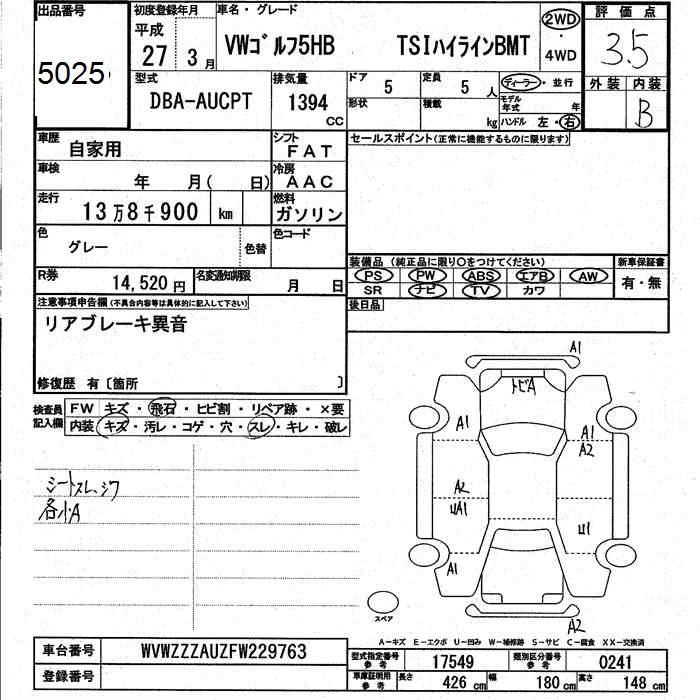 出品番号
5025
初度登録年月
平成
27 3月
車名・グレード
VWゴルフ5HB TSIハイラインBMT
2WD
・
4WD
評価点
3.5
外装 内装
B
型式
DBA-AUCPT
排気量
1394
CC
ドア
5
定員
5 人
ディーラー・並行
形状
積載
kg
モデル年式 年
ハンドル 左・右
車歴
自家用
シフト
FAT
セールスポイント(正常に機能するものに限ります)
車検
年 月( 日)
冷房
AAC
走行
13万8千900 km
燃料
ガソリン
色
グレー
色替
色コード
R券
14,520円
名変通知期限
月 日
装備品(純正品に限り○をつけてください)
PS PW ABS エアB AW
SR ナビ TV カワ
新車保証書
有・無
後日品
注意事項申告欄(不具合内容等は具体的に記入して下さい)
リアブレーキ異音
修復歴 有〔箇所 〕
検査員記入欄
FW キズ・飛石・ヒビ割・リペア跡・×要
内装 キズ・汚レ・コゲ・穴・スレ・キレ・破レ
シートスレ、シワ
各小A
A1
トビA
A1
A1
A2
A2
UA1
U1
A1
A2
スペア
A-キズ E-エクボ U-凹み W-補修跡 S-サビ C-腐食 XX-交換済
車台番号
WVWZZZAUZFW229763
登録番号
型式指定番号
参考
17549
類別区分番号
参考
0241
車庫証明用
参考
長さ
426 cm
幅
180 cm
高さ
148 cm